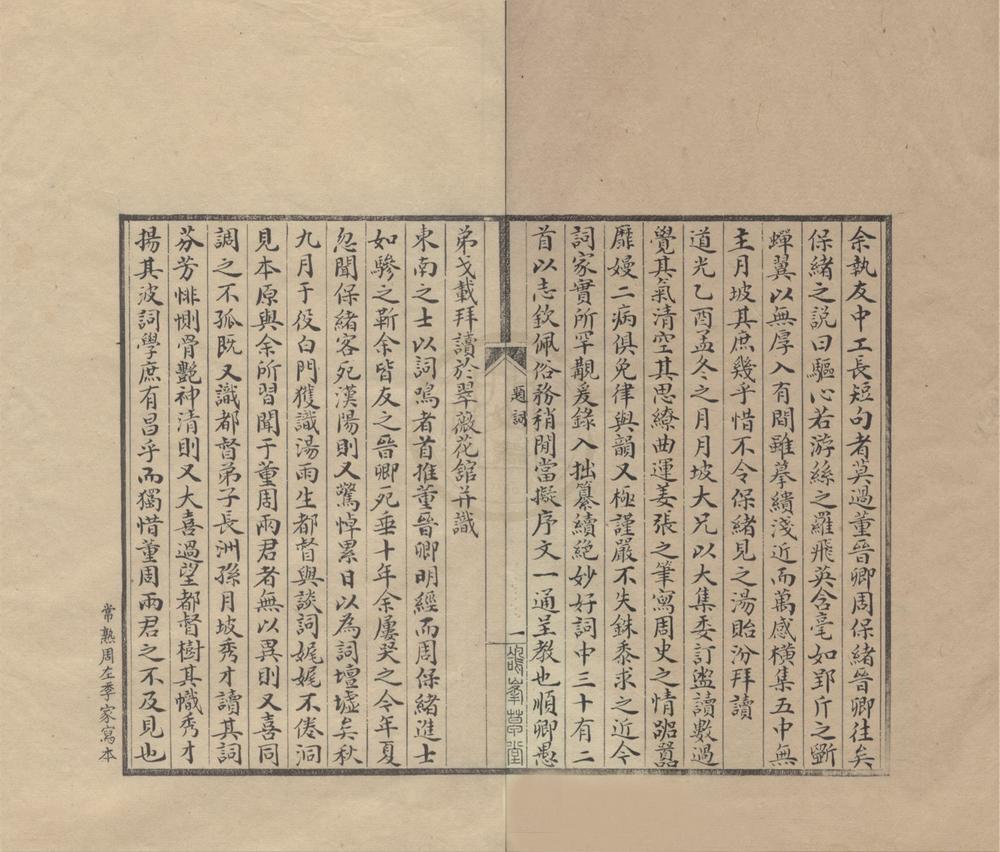 余執友中工長短句者莫過董晉卿周保緒晉卿往矣
保緒之説曰驅心若游絲之羅飛英含毫如郢斤之斵
蟬翼以無厚入有間雖摹繢淺近而萬感橫集五中無
主月坡其庶幾乎惜不令保緒見之湯貽汾拜讀
道光乙酉孟冬之月月坡大兄以大集委訂盥讀數過
覺其氣清空其思繚曲運姜張之筆寫周史之情嚻囂
靡嫚二病俱免律與韻又極謹嚴不失銖黍求之近今
詞家實所罕觀爰錄入拙纂續絕妙好詞中三十有二
首以志欽佩俗務稍閒當擬序文一通呈教也順卿愚
題詞
一
弟戈載拜讀於翠薇花館并識
東南之士以詞鳴者首推董晉卿明經而周保緒進士
如驂之靳余皆友之晉卿死垂十年余屢哭之今年夏
忽聞保緒客死漢陽則又驚悼累日以為詞壇墟矣秋
九月于役白門獲識湯雨生都督與談詞娓娓不倦洞
見本原與余所習聞于董周兩君者無以異則又喜同
調之不孤既又識都督弟子長洲孫月坡秀才讀其詞
芬芳悱惻骨艷神清則又大喜過望都督樹其幟秀才
揚其波詞學庶有昌乎而獨惜董周兩君之不及見也
常熟周左季家寫本